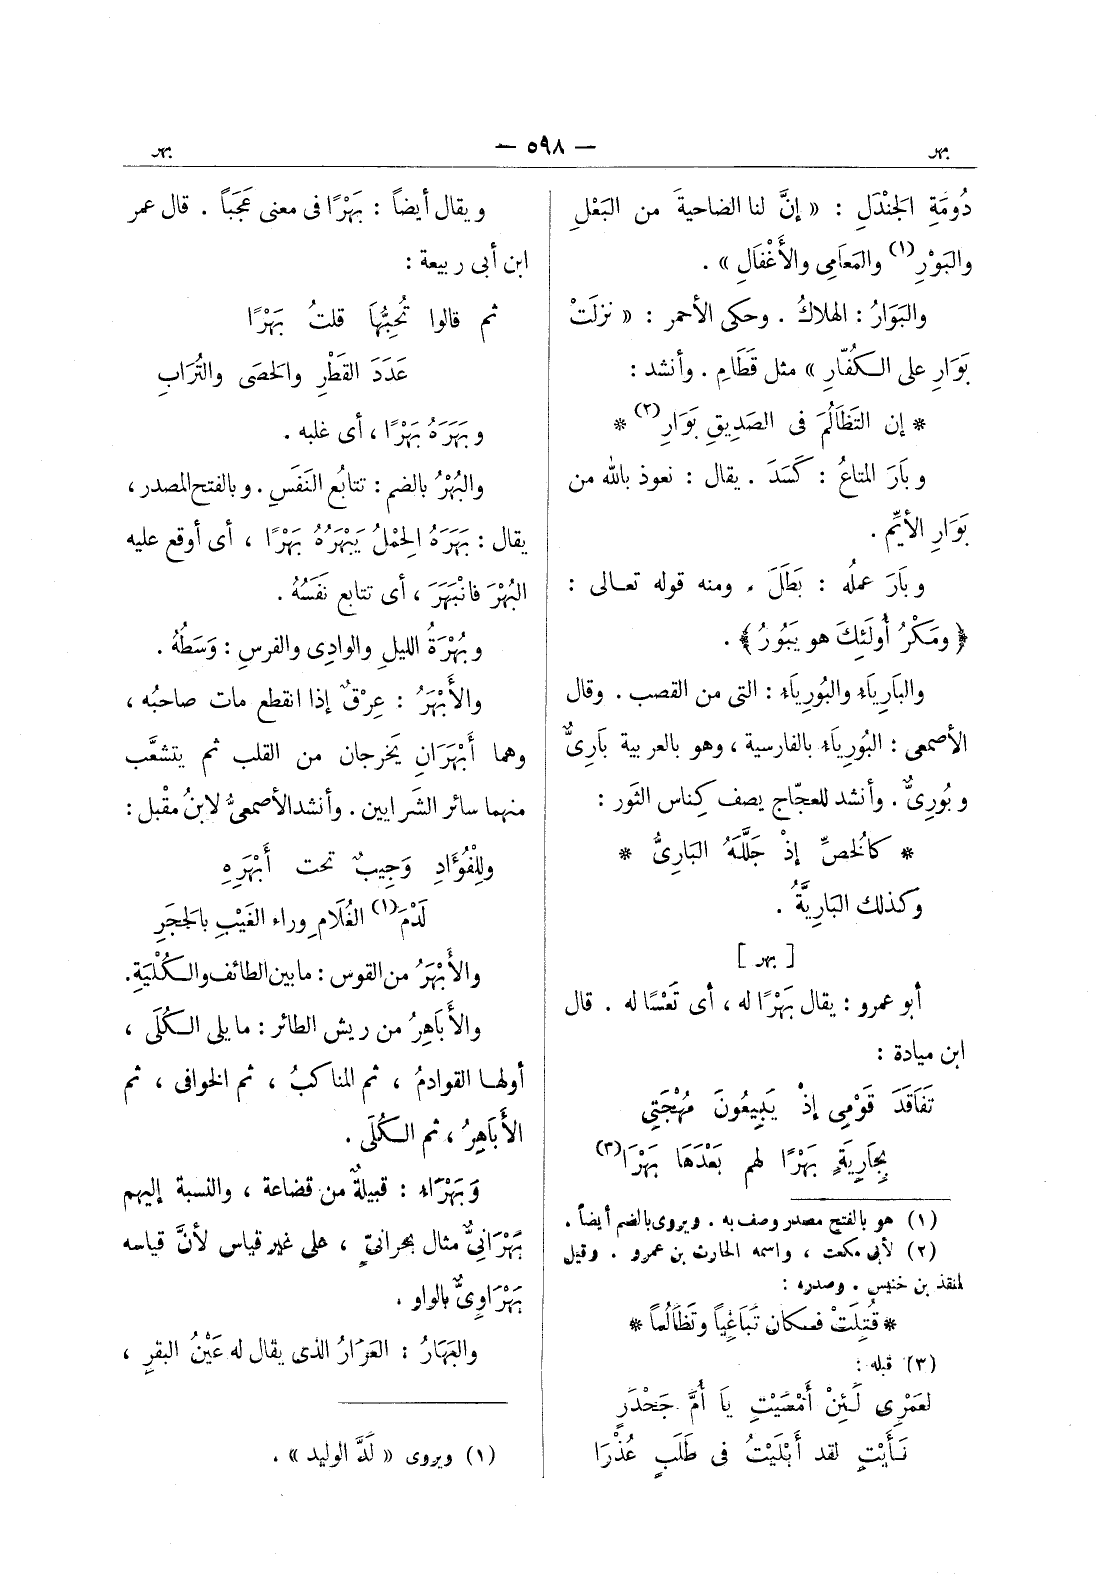 بهر
— ٥٩٨ —
بهر
دُومَةِ الجَنْدَلِ : « إنَّ لنا الضاحيةَ من البَعْلِ
والبَوْرِ(١) والمَعَامِى والأَغْفَالِ » .
والبَوَارُ : الهلاكُ . وحكى الأحمر : « نزلَتْ
بَوَارِ على الكُفّارِ » مثل قَطَامِ . وأنشد :
* إن التَظَالُمَ فى الصَدِيقِ بَوَارِ(٢) *
وبَارَ المتاعُ : كَسَدَ . يقال : نعوذ بالله من
بَوَارِ الأَيِّم .
وبَارَ عملُه : بَطَلَ . ومنه قوله تعالى :
﴿ ومَكْرُ أُولَئِكَ هو يَبُورُ ﴾ .
والبَارِيَاء والبُورِيَاء : التى من القصب . وقال
الأصمعى : البُورِيَاء بالفارسية ، وهو بالعربية بَارِىٌّ
وبُورِىٌّ . وأنشد للعجّاج يصف كِناس الثَور :
* كالخُصِّ إذْ جَلَّلَهُ البَارِىُّ *
وكذلك البَارِيَّةُ .
[ بهر ]
أبو عمرو : يقال بَهْرًا له ، أى تَعْسًا له . قال
ابن ميادة :
تَفَاقَدَ قَوْمِى إذْ يَبِيعُونَ مُهْجَتِى
بِجَارِيَةٍ بَهْرًا لهم بَعْدَهَا بَهْرَا(٣)
(١) هو بالفتح مصدر وصف به . ويروى بالضم أيضاً .
(٢) لأبى مكعت ، واسمه الحارث بن عمرو . وقيل
لمنقذ بن خنيس . وصدره :
* قُتِلَتْ فكان تَبَاغِياً وتَظَالُماً *
(٣) قبله :
لعَمْرِى لَئِنْ أَمْسَيْتِ يَا أُمَّ جَحْدَرٍ
نَأَيْتِ لقد أَبْلَيْتُ فى طَلَبٍ عُذْرَا
ويقال أيضاً : بَهْرًا فى معنى عَجَباً . قال عمر
ابن أبى ربيعة :
ثم قالوا تُحِبُّهَا قلتُ بَهْرًا
عَدَدَ القَطْرِ والحَصَى والتُرَابِ
وبَهَرَهُ بَهْرًا ، أى غلبه .
والبُهْرُ بالضم : تتابُع النَفَسِ . وبالفتح المصدر ،
يقال : بَهَرَهُ الحِمْلُ يَبْهَرُهُ بَهْرًا ، أى أوقع عليه
البُهْرَ فَانْبَهَرَ ، أى تتابع نَفَسُهُ .
وبُهْرَةُ الليلِ والوادِى والفرسِ : وَسَطُهُ .
والأَبْهَرُ : عِرْقٌ إذا انقطع مات صاحبُه ،
وهما أَبْهَرَانِ يَخرجان من القلب ثم يتشعَّب
منهما سائر الشَرايين . وأنشد الأصمعىُّ لابنُ مقْبل :
ولِلْفُؤَادِ وَجِيبٌ تحت أَبْهَرِهِ
لَدْمَ(١) الغُلَامِ وراء الغَيْبِ بالحَجَرِ
والأَبْهَرُ من القوس : ما بين الطائف والكُلْيَةِ.
والأَبَاهِرُ من ريش الطائر : ما يلى الكُلَى ،
أولها القوادمُ ، ثم المناكبُ ، ثم الخوافى ، ثم
الأَبَاهِرُ ، ثم الكُلَى .
وَبَهْرَاء : قبيلةٌ من قضاعة ، والنسبة إليهم
بَهْرَانِىٌّ مثال بحرانىٍّ ، على غير قياس لأنَّ قياسه
بَهْرَاوِىٌّ بالواو .
والبَهَارُ : العَرَارُ الذى يقال له عَيْنُ البقرِ ،
(١) ويروى « لَدَّ الوليد » .